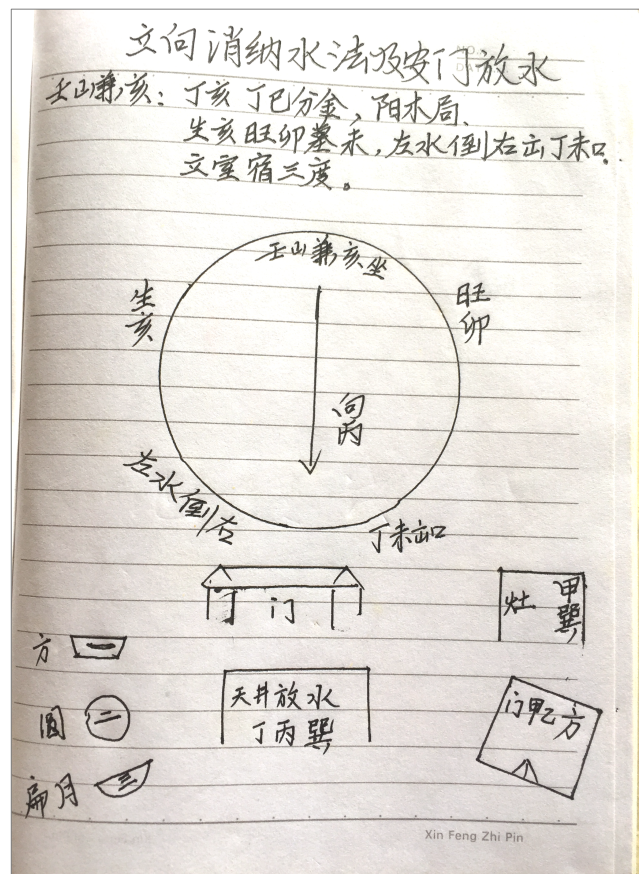 立向消纳水法及安门放水
壬山兼亥：丁亥丁巳分金，阳木局、
生亥旺卯墓未，左水倒右出丁未口。
立室宿三度。
壬山兼亥坐
生亥
旺卯
向丙
左水倒右
丁未出口
门
灶 甲巽
方 一
圆 二
扁月 三
天井放水
丁丙巽
门甲乙方
Xin Feng Zhi Pin